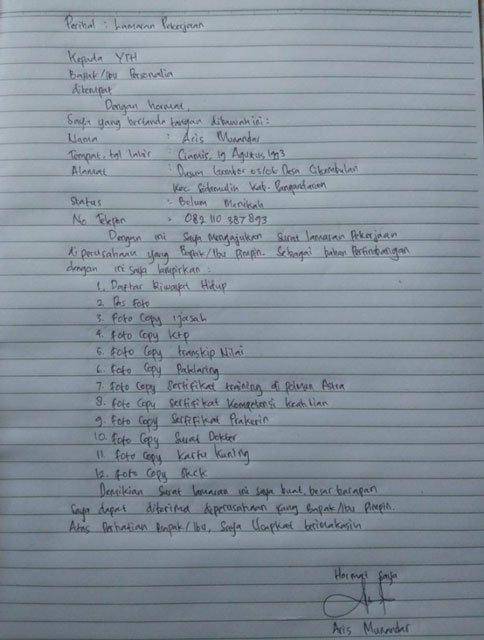 Perihal : Lamaran Pekerjaan
Kepada YTH
Bapak/Ibu Personalia
ditempat
Dengan hormat,
Saya yang bertanda tangan dibawah ini :
Nama : Aris Munandar
Tempat, tgl lahir : Ciamis, 19 Agustus 1993
Alamat : Dusun 05/06 Desa Cikembulan
Kec Sidamulih Kab. Pangandaran
Status : Belum Menikah
No Telepon : 082 110 387 893
Dengan ini Saya Mengajukan Surat lamaran Pekerjaan
di perusahaan yang Bapak/Ibu Pimpin. Sebagai bahan Pertimbangan
dengan ini saya lampirkan :
1. Daftar Riwayat Hidup
2. Pas Foto
3. Foto Copy ijasah
4. Foto Copy Ktp
5. Foto Copy transkip Nilai
6. Foto Copy Paklaring
7. Foto Copy Sertifikat training di Polman Astra
8. Foto Copy Sertifikat Kompetensi keahlian
9. Foto Copy Sertifikat Prakerin
10. Foto Copy Surat Dokter
11. Foto Copy Kartu Kuning
12. Foto Copy Skck
Demikian Surat lamaran ini saya buat, besar harapan
Saya dapat diterima diperusahaan yang Bapak/Ibu Pimpin.
Atas Perhatian Bapak/Ibu, Saya Ucapkan terimakasih
Hormat Saya
Aris Munandar